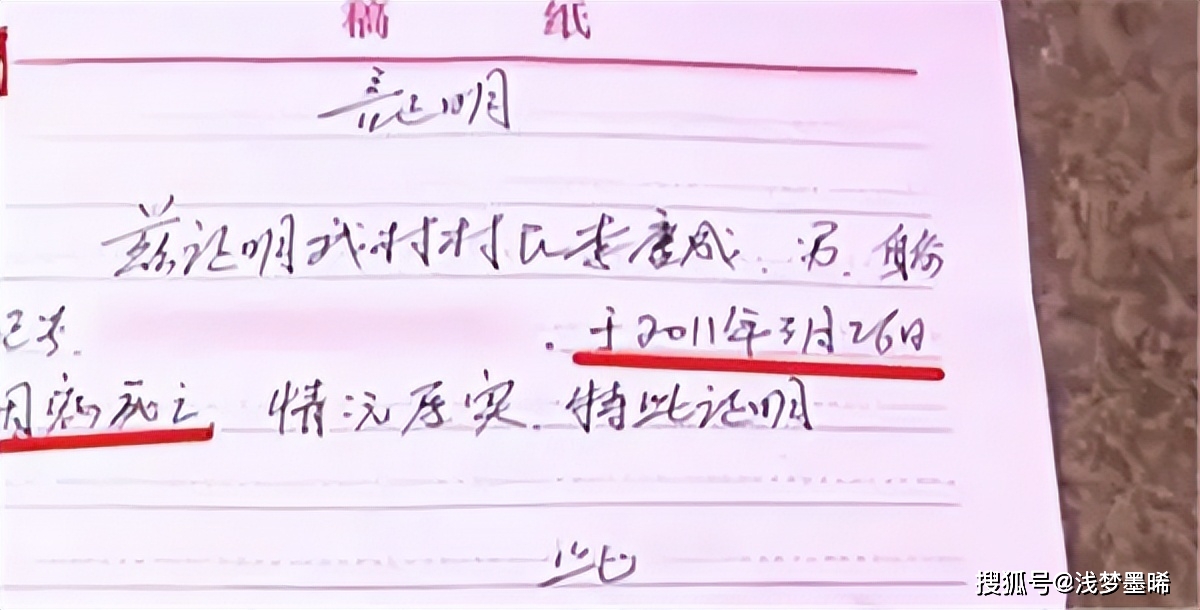 稿 纸
证明
兹证明我村村民李产成、男、身份
证号、 、于2011年3月26日
因病死亡 情况属实、特此证明
此
搜狐号@浅梦墨晞